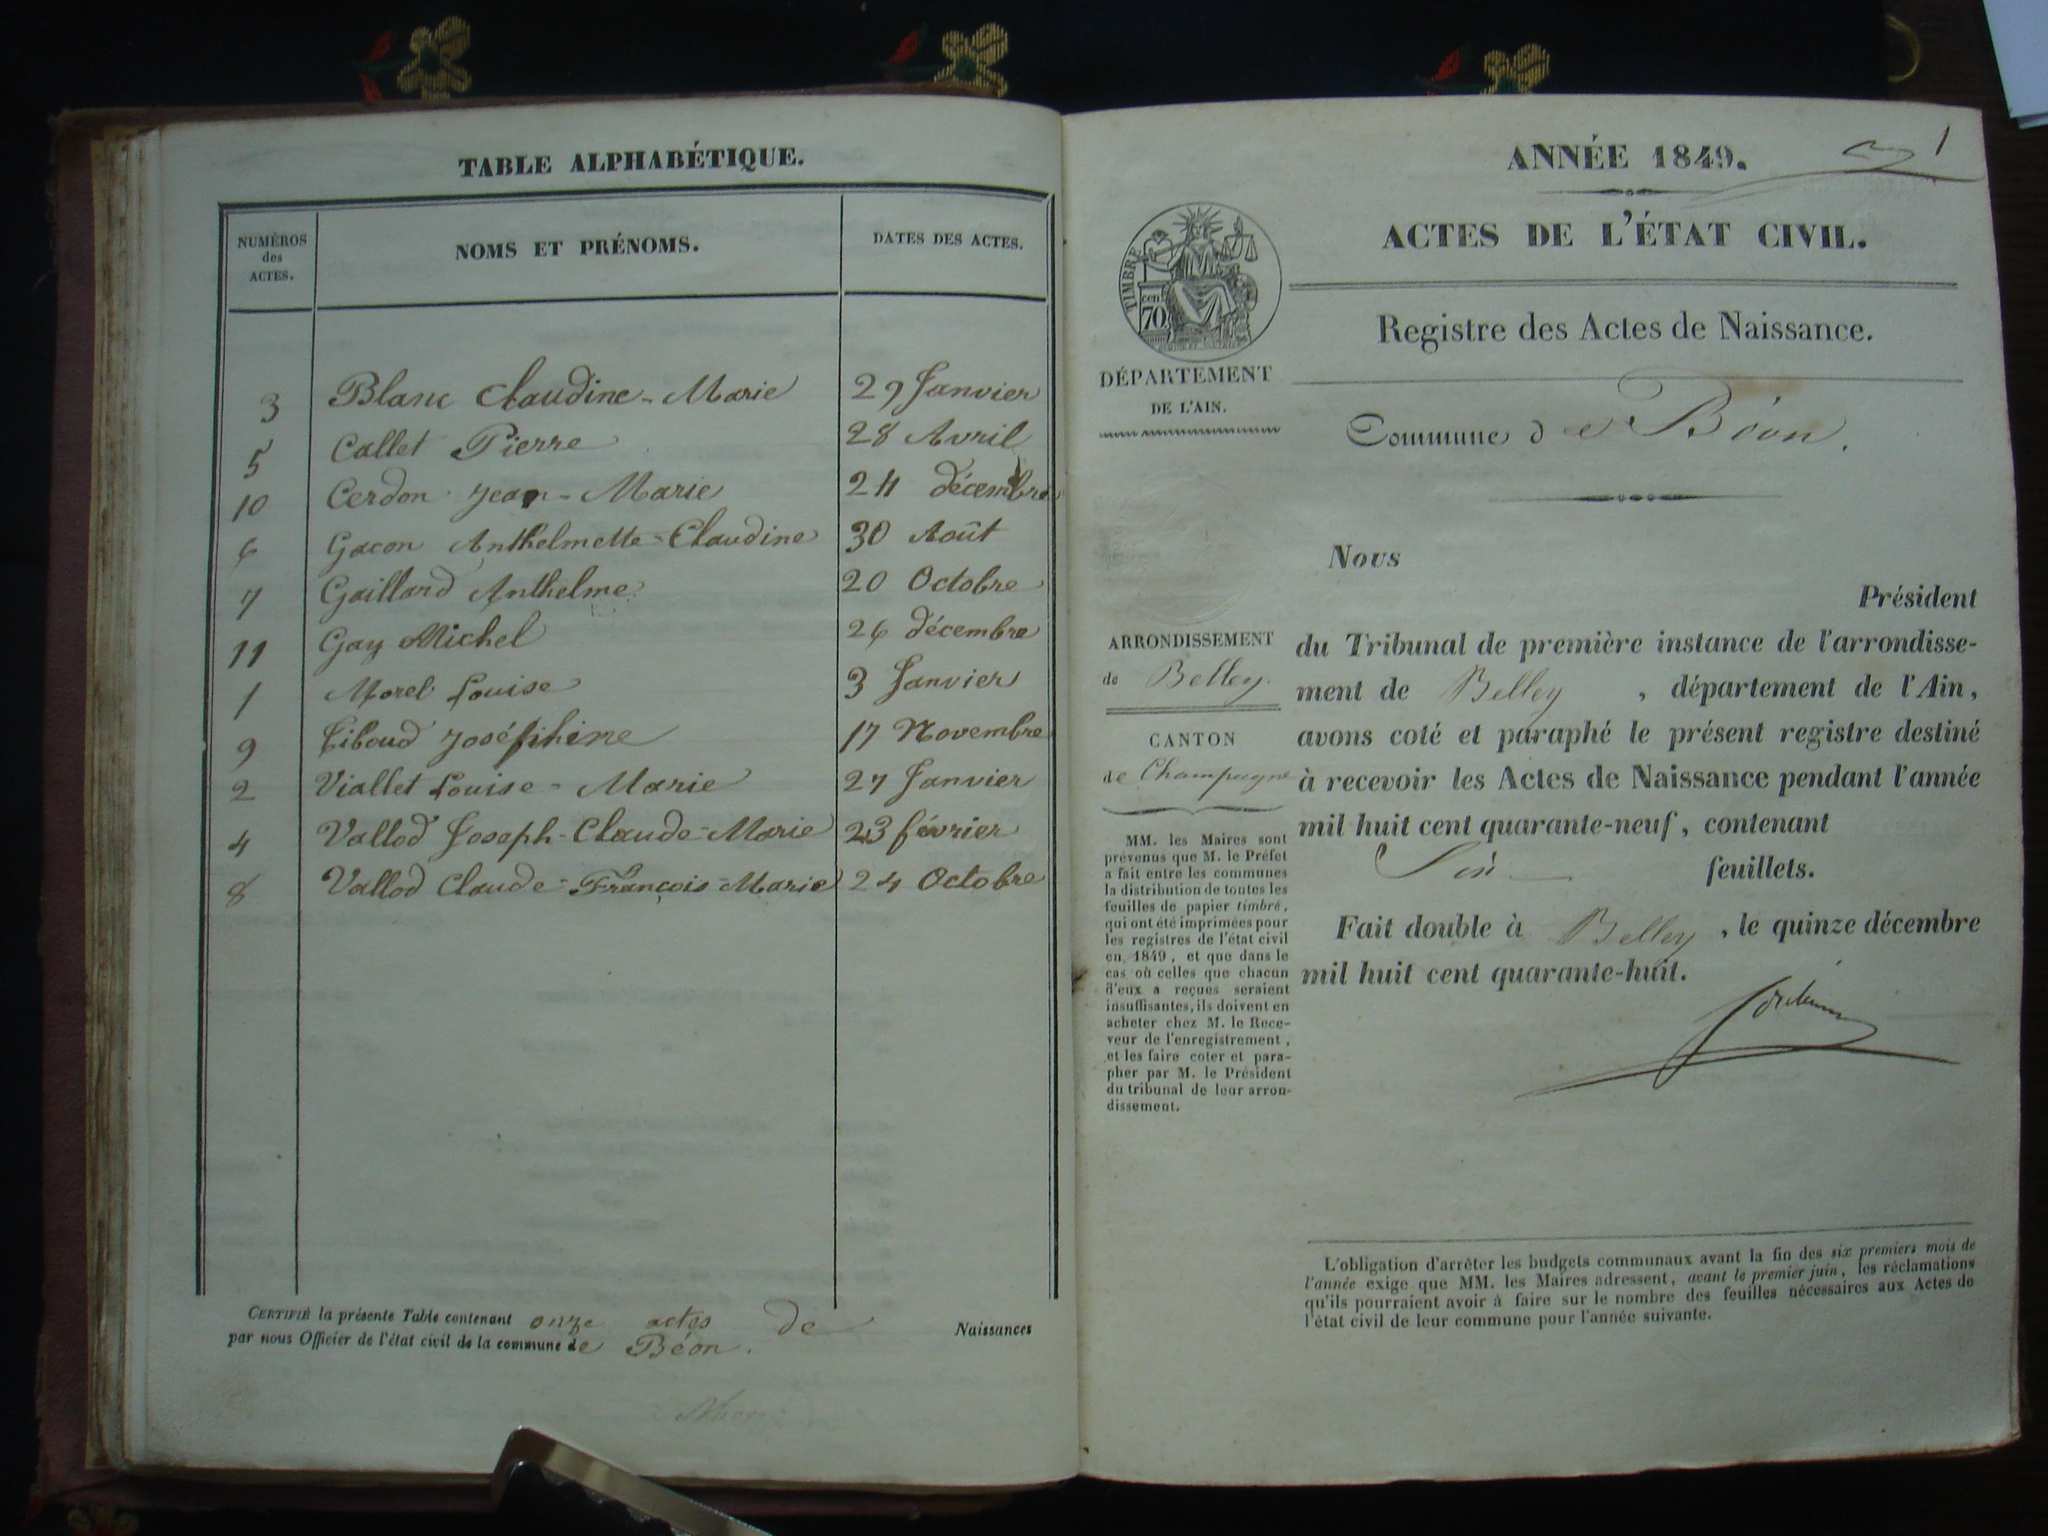 TABLE ALPHABÉTIQUE.
NUMÉROS des ACTES.
NOMS ET PRÉNOMS.
DATES DES ACTES.
3 Blanc Claudine-Marie 29 Janvier
5 Callet Pierre 28 Avril
10 Cerdon Jean-Marie 24 décembre
6 Gacon Anthelmette-Claudine 30 Août
7 Gaillard Anthelme 20 Octobre
11 Gay Michel 26 décembre
1 Morel Louise 3 Janvier
9 Tiboud Joséphine 17 Novembre
2 Viallet Louise-Marie 27 Janvier
4 Vallod Joseph-Claude-Marie 23 février
8 Vallod Claude-François-Marie 24 Octobre
CERTIFIÉ la présente Table contenant onze actes de Naissances
par nous Officier de l'état civil de la commune de Béon.
1
ANNÉE 1849.
ACTES DE L'ÉTAT CIVIL.
TIMBRE
70 cen
Registre des Actes de Naissance.
DÉPARTEMENT
DE L'AIN.
Commune de Béon.
ARRONDISSEMENT
de Belley.
CANTON
de Champagne
MM. les Maires sont
prévenus que M. le Préfet
a fait entre les communes
la distribution de toutes les
feuilles de papier timbré,
qui ont été imprimées pour
les registres de l'état civil
en 1849, et que dans le
cas où celles que chacun
d'eux a reçues seraient
insuffisantes, ils doivent en
acheter chez M. le Rece-
veur de l'enregistrement,
et les faire coter et para-
pher par M. le Président
du tribunal de leur arron-
dissement.
Nous
Président
du Tribunal de première instance de l'arrondisse-
ment de Belley, département de l'Ain,
avons coté et paraphé le présent registre destiné
à recevoir les Actes de Naissance pendant l'année
mil huit cent quarante-neuf, contenant
Six feuillets.
Fait double à Belley, le quinze décembre
mil huit cent quarante-huit.
L'obligation d'arrêter les budgets communaux avant la fin des six premiers mois de
l'année exige que MM. les Maires adressent, avant le premier juin, les réclamations
qu'ils pourraient avoir à faire sur le nombre des feuilles nécessaires aux Actes de
l'état civil de leur commune pour l'année suivante.